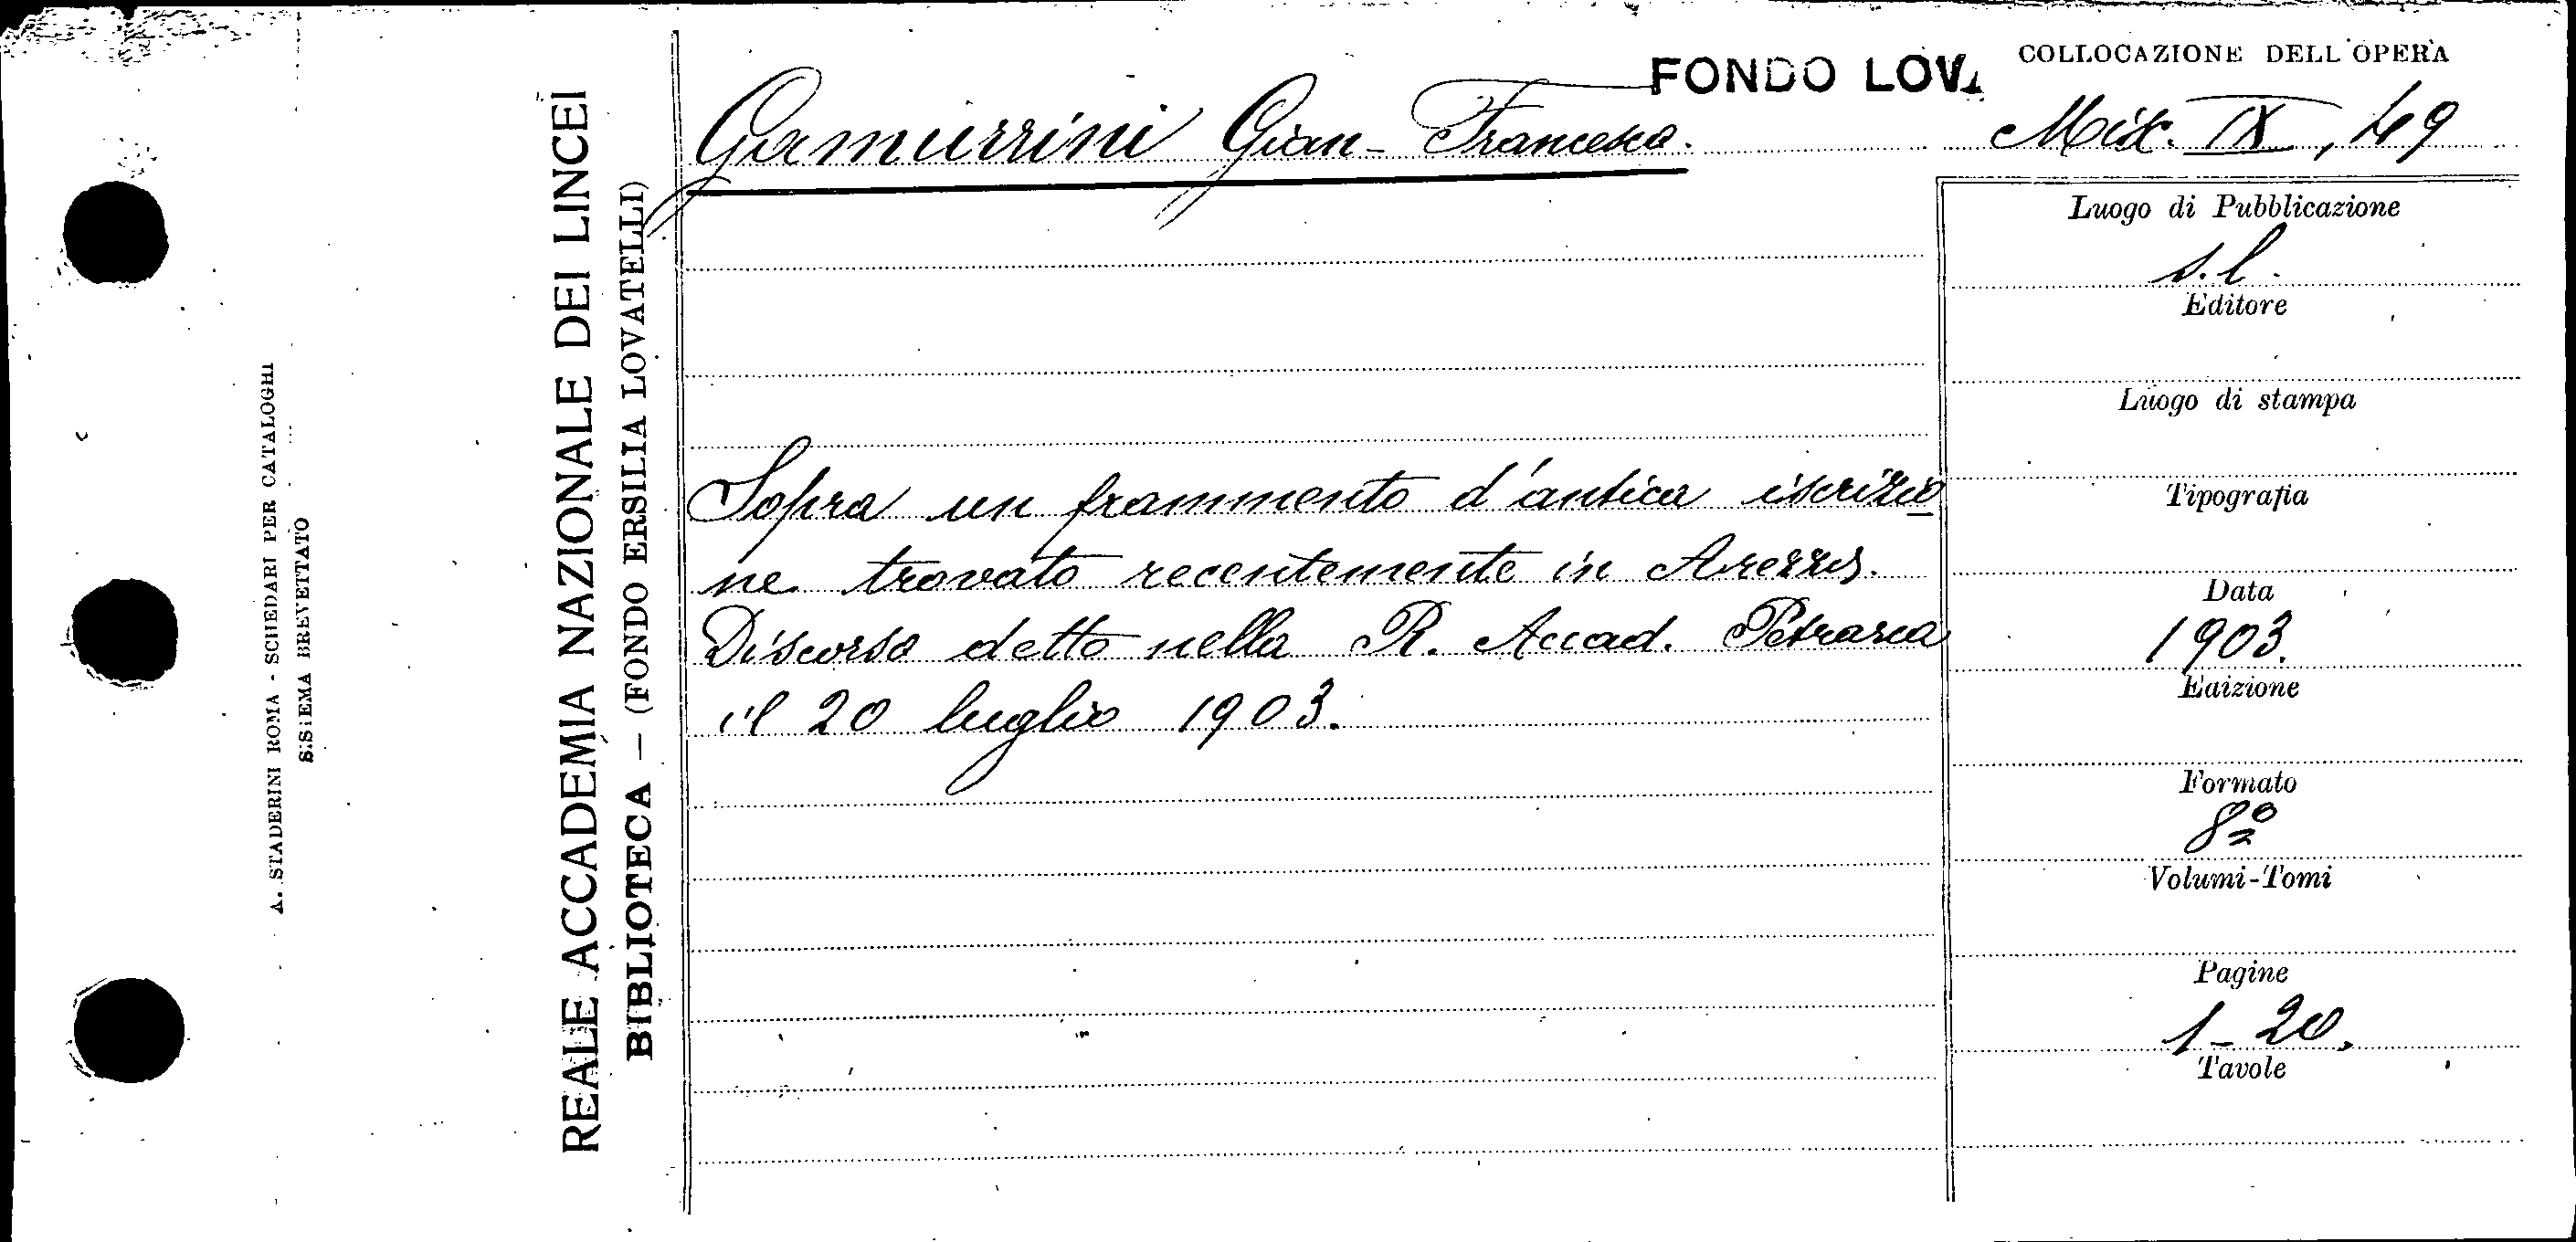 A. STADERINI ROMA - SCHEDARI PER CATALOGHI
SISTEMA BREVETTATO
REALE ACCADEMIA NAZIONALE DEI LINCEI
BIBLIOTECA — (FONDO ERSILIA LOVATELLI)
FONDO LOVA
COLLOCAZIONE DELL'OPERA
Gamurrini Gian-Francesco.
Misc. IX, 49
Sopra un frammento d'antica iscrizio
ne trovato recentemente in Arezzo.
Discorso detto nella R. Accad. Petrarca
il 20 luglio 1903.
Luogo di Pubblicazione
s.l.
Editore
Luogo di stampa
Tipografia
Data
1903.
Edizione
Formato
8º
Volumi-Tomi
Pagine
1-20.
Tavole